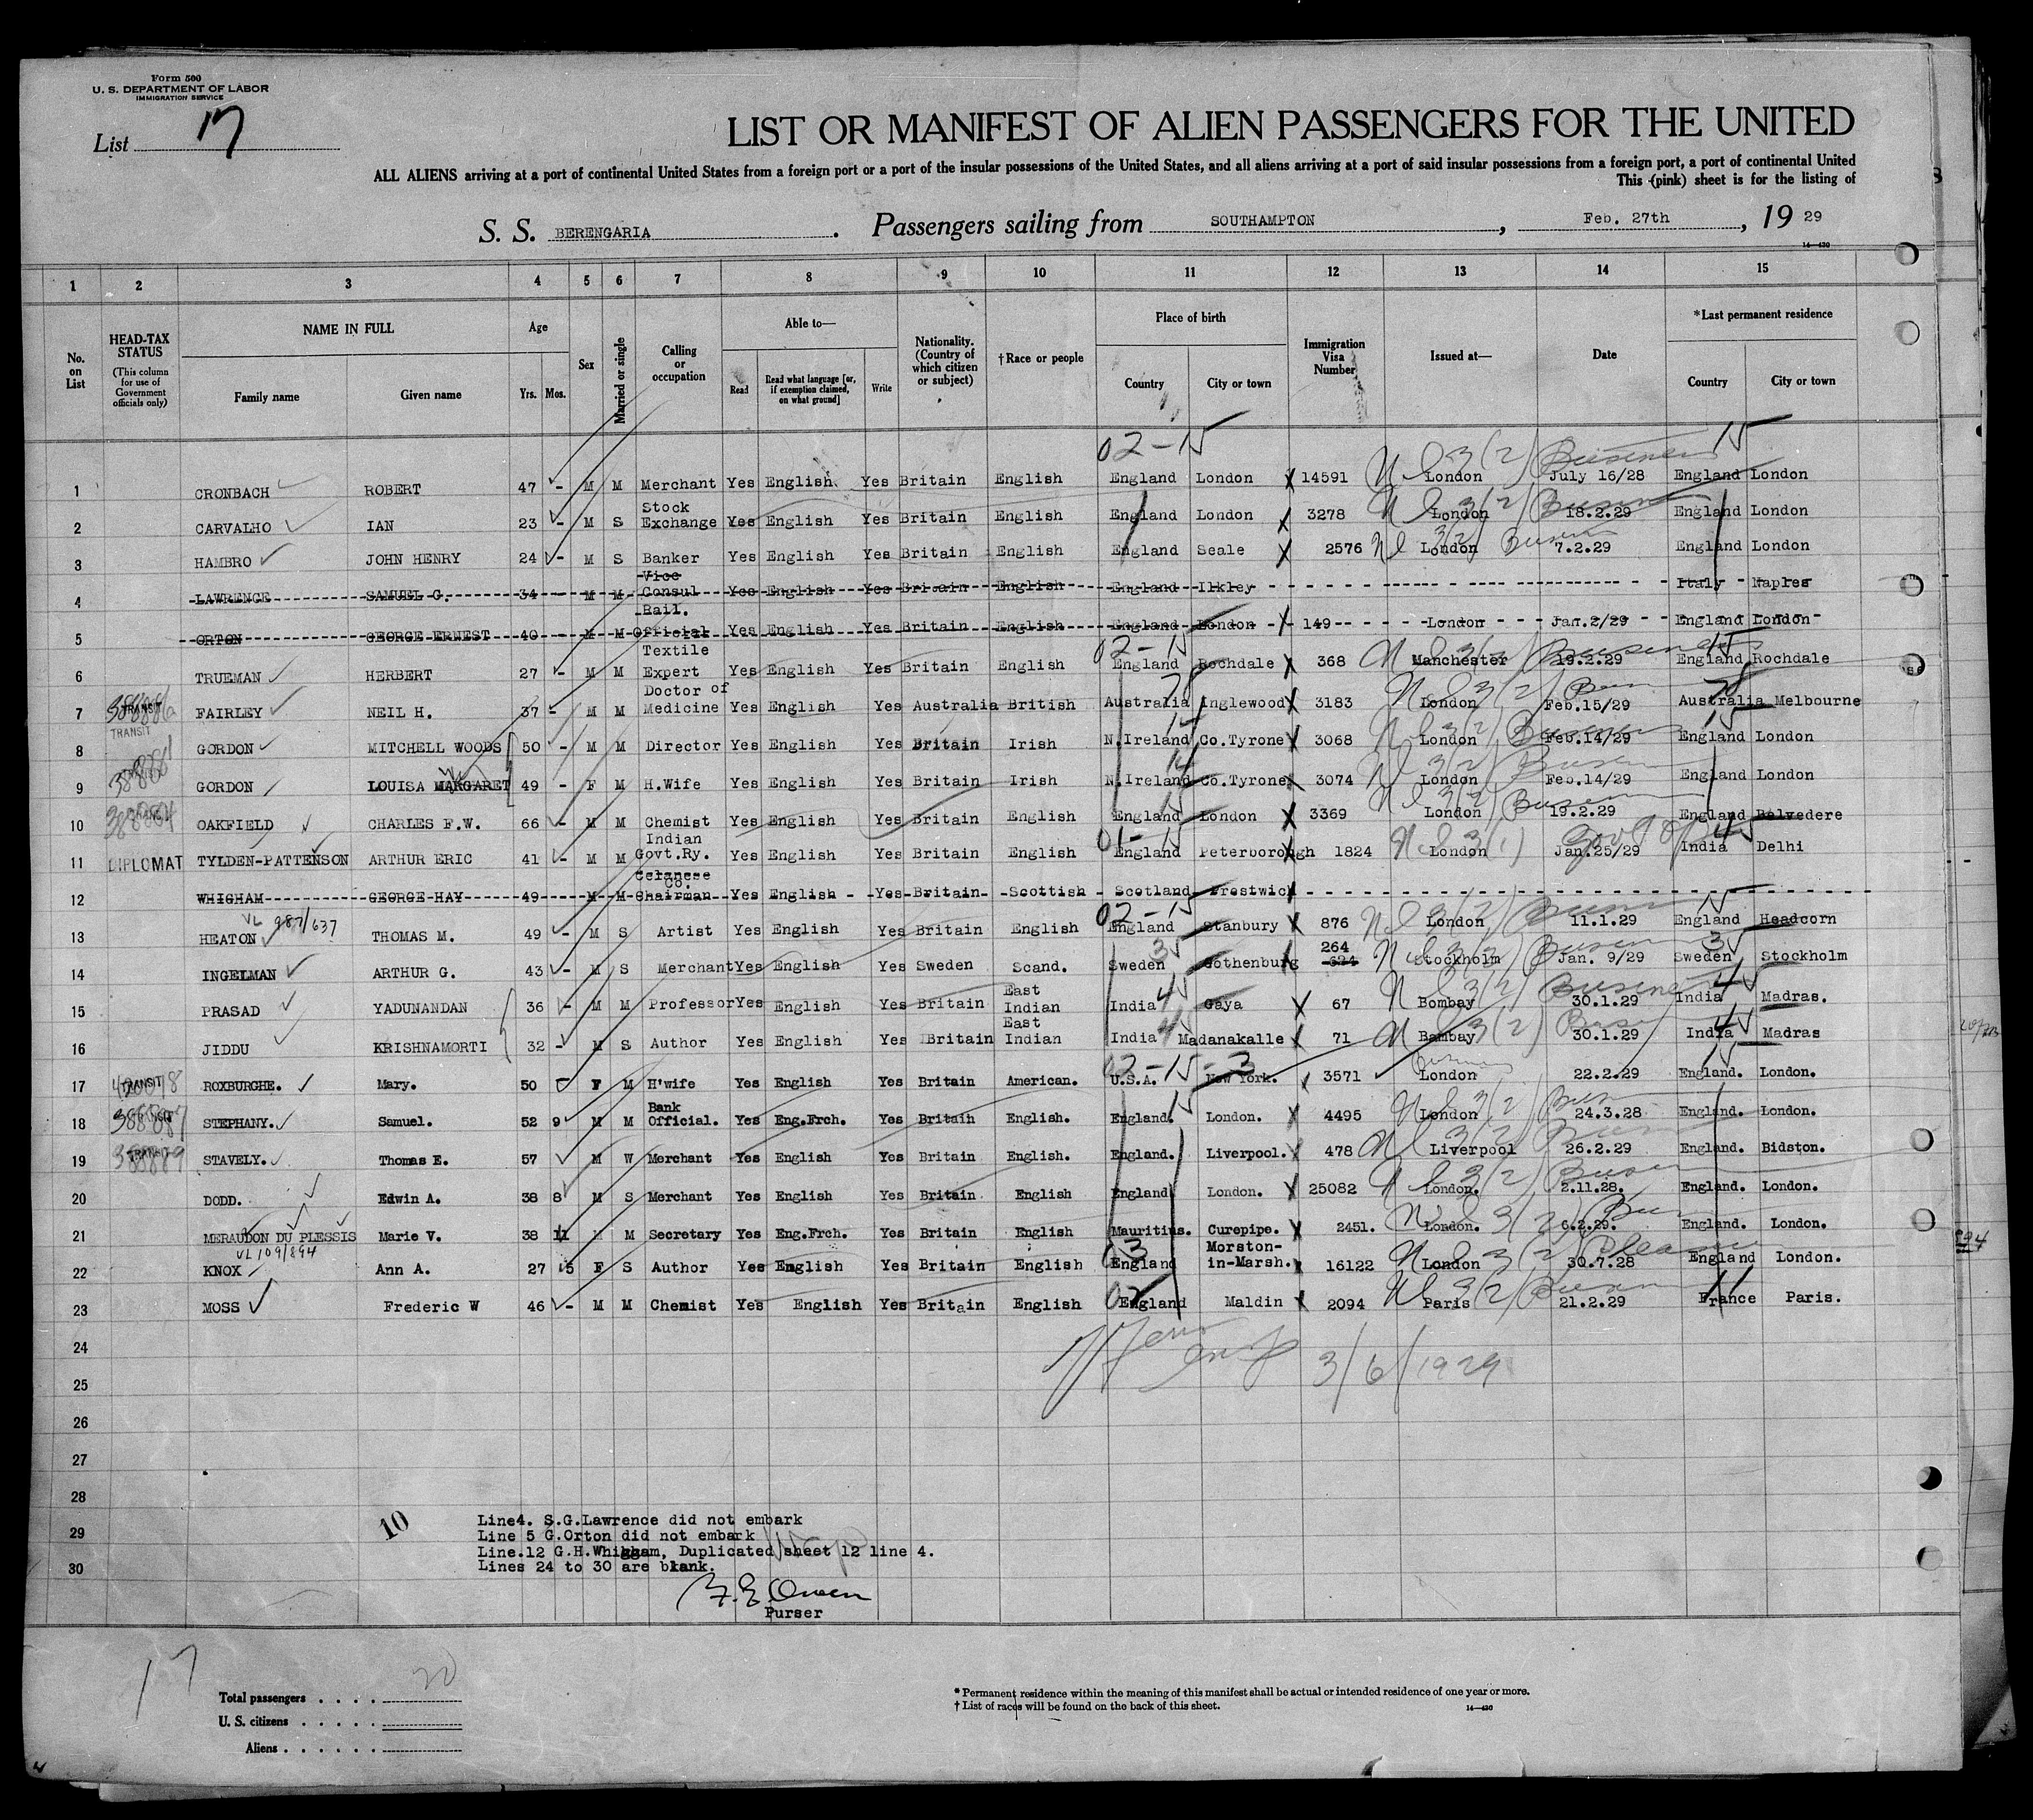 Form 500
U. S. DEPARTMENT OF LABOR
IMMIGRATION SERVICE
List 17
LIST OR MANIFEST OF ALIEN PASSENGERS FOR THE UNITED
ALL ALIENS arriving at a port of continental United States from a foreign port or a port of the insular possessions of the United States, and all aliens arriving at a port of said insular possessions from a foreign port, a port of continental United
This (pink) sheet is for the listing of
S. S. BERENGARIA. Passengers sailing from SOUTHAMPTON, Feb. 27th, 19 29
14—430
1 2 3 4 5 6 7 8 9 10 11 12 13 14 15
No. on List
HEAD-TAX STATUS (This column for use of Government officials only)
NAME IN FULL Family name Given name
Age Yrs. Mos.
Sex
Married or single
Calling or occupation
Able to— Read Read what language [or, if exemption claimed, on what ground] Write
Nationality. (Country of which citizen or subject)
†Race or people
Place of birth Country City or town
Immigration Visa Number
Issued at—
Date
*Last permanent residence Country City or town
02-15 15
1 CRONBACH ROBERT 47 - M M Merchant Yes English Yes Britain English England London 14591 London July 16/28 England London
2 CARVALHO IAN 23 - M S Stock Exchange Yes English Yes Britain English England London 3278 London 18.2.29 England London
3 HAMBRO JOHN HENRY 24 - M S Banker Yes English Yes Britain English England Seale 2576 London 7.2.29 England London
4 LAWRENCE SAMUEL G. 34 - M M Vice Consul Yes English Yes Britain English England Ilkley Italy Naples
5 ORTON GEORGE ERNEST 40 - M M Rail. Official Yes English Yes Britain English England London 149 London Jan.2/29 England London
02-15 15
6 TRUEMAN HERBERT 27 - M M Textile Expert Yes English Yes Britain English England Rochdale 368 Manchester 19.2.29 England Rochdale
7 TRANSIT FAIRLEY NEIL H. 37 - M M Doctor of Medicine Yes English Yes Australia British Australia Inglewood 3183 London Feb.15/29 Australia Melbourne
8 TRANSIT GORDON MITCHELL WOODS 50 - M M Director Yes English Yes Britain Irish N.Ireland Co.Tyrone 3068 London Feb.14/29 England London
9 GORDON LOUISA MARGARET 49 - F M H.Wife Yes English Yes Britain Irish N.Ireland Co.Tyrone 3074 London Feb.14/29 England London
10 TRANSIT OAKFIELD CHARLES F.W. 66 - M M Chemist Yes English Yes Britain English England London 3369 London 19.2.29 England Belvedere
11 DIPLOMAT TYLDEN-PATTENSON ARTHUR ERIC 41 - M M Indian Govt.Ry. Yes English Yes Britain English England Peterborough 1824 London Jan.25/29 India Delhi
12 WHIGHAM GEORGE HAY 49 - M M Celanese Co. Chairman Yes English Yes Britain Scottish Scotland Prestwick
VL 987/637 02-15 15
13 HEATON THOMAS M. 49 - M S Artist Yes English Yes Britain English England Stanbury 876 London 11.1.29 England Headcorn
14 INGELMAN ARTHUR G. 43 - M S Merchant Yes English Yes Sweden Scand. Sweden Gothenburg 264 624 Stockholm Jan. 9/29 Sweden Stockholm
15 PRASAD YADUNANDAN 36 - M M Professor Yes English Yes Britain East Indian India Gaya 67 Bombay 30.1.29 India Madras.
16 JIDDU KRISHNAMORTI 32 - M S Author Yes English Yes Britain East Indian India Madanakalle 71 Bambay 30.1.29 India Madras
02-15-3 15
17 TRANSIT ROXBURGHE. Mary. 50 F M H'wife Yes English Yes Britain American. U.S.A. New York. 3571 London 22.2.29 England. London.
18 STEPHANY. Samuel. 52 9 M M Bank Official. Yes Eng.Frch. Yes Britain English. England. London. 4495 London 24.3.28 England. London.
19 TRANSIT STAVELY. Thomas E. 57 M W Merchant Yes English Yes Britain English. England. Liverpool. 478 Liverpool 26.2.29 England. Bidston.
20 DODD. Edwin A. 38 8 M S Merchant Yes English Yes Britain English England London. 25082 London. 2.11.28. England. London.
21 MERAUDON DU PLESSIS Marie V. 38 11 M Secretary Yes Eng.Frch. Yes Britain English Mauritius. Curepipe. 2451. London. 6.2.29. England. London.
VL 109/894 03
22 KNOX Ann A. 27 5 F S Author Yes English Yes Britain English England Morston-in-Marsh. 16122 London 30.7.28 England London.
23 MOSS Frederic W 46 - M M Chemist Yes English Yes Britain English England Maldin 2094 Paris 21.2.29 France Paris.
24
3/6/1929
25
26
27
28
29
30
10
Line4. S.G.Lawrence did not embark
Line 5 G.Orton did not embark
Line.12 G.H.Whigham, Duplicated sheet 12 line 4.
Lines 24 to 30 are blank.
Purser
17
Total passengers . . . . 20
U. S. citizens . . . . .
Aliens . . . . . .
* Permanent residence within the meaning of this manifest shall be actual or intended residence of one year or more.
† List of races will be found on the back of this sheet.
14—430